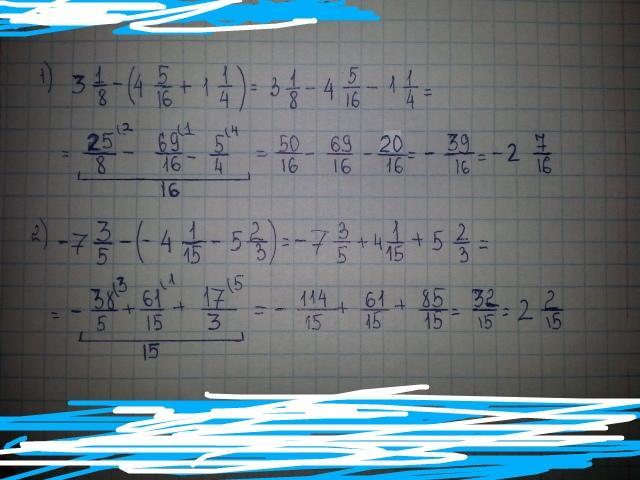 1) 3 1/8 - (4 5/16 + 1 1/4) = 3 1/8 - 4 5/16 - 1 1/4 =
= 25/8 (2 - 69/16 (1 - 5/4 (4 = 50/16 - 69/16 - 20/16 = - 39/16 = -2 7/16
16
2) -7 3/5 - (-4 1/15 - 5 2/3) = -7 3/5 + 4 1/15 + 5 2/3 =
= - 38/5 (3 + 61/15 (1 + 17/3 (5 = - 114/15 + 61/15 + 85/15 = 32/15 = 2 2/15
15